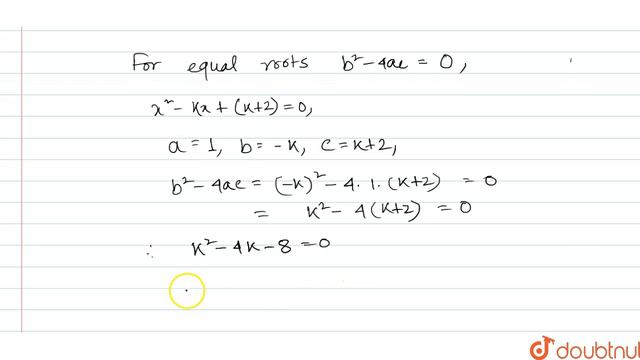 For equal roots b² - 4ac = 0,
x² - Kx + (K+2) = 0,
a = 1, b = -K, c = K+2,
b² - 4ac = (-K)² - 4 · 1 · (K+2) = 0
= K² - 4(K+2) = 0
∴ K² - 4K - 8 = 0
doubtnut